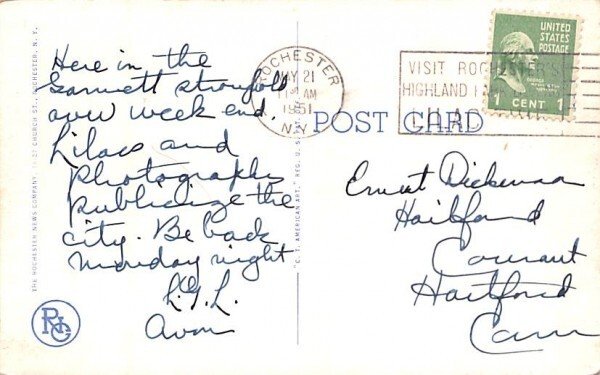 Here in the
Gannett stronghold
over week end.
Lilacs and
photographs
publicize the
city. Be back
Monday night
L.G.L.
Avon
ROCHESTER
MAY 21
AM
1951
N.Y.
VISIT ROCHESTER'S
HIGHLAND
LILAC
UNITED
STATES
POSTAGE
1 CENT 1
POST CARD
Ernest Dickerman
Hartford
Courant
Hartford
Conn
THE ROCHESTER NEWS COMPANY, CHURCH ST., ROCHESTER, N. Y.
"C. T. AMERICAN ART," REG. U. S. PAT. OFF.
RNC